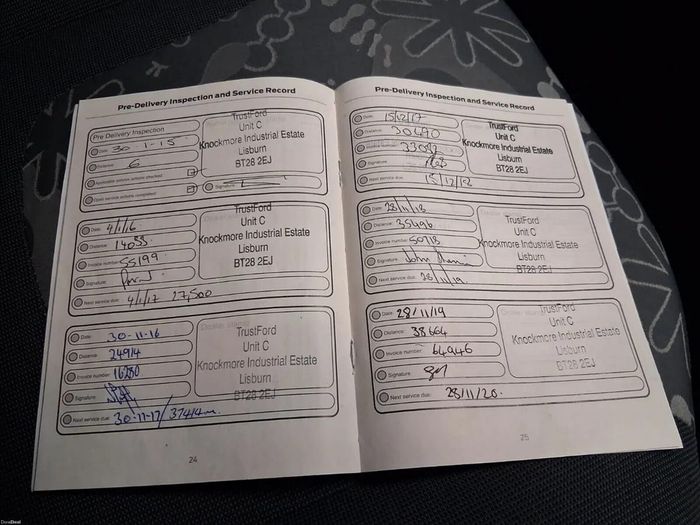 Pre-Delivery Inspection and Service Record
Pre Delivery Inspection
Date: 30-1-15
Distance: 6
Applicable service actions checked
Open service actions completed
Signature:
TrustFord
Unit C
Knockmore Industrial Estate
Lisburn
BT28 2EJ
Date: 4/1/16
Distance: 14055
Invoice number: 55199
Signature:
Next service due: 4/1/17 27,500
TrustFord
Unit C
Knockmore Industrial Estate
Lisburn
BT28 2EJ
Date: 30-11-16
Distance: 24914
Invoice number: 16280
Signature:
Next service due: 30-11-17/37414m
TrustFord
Unit C
Knockmore Industrial Estate
Lisburn
BT28 2EJ
24
Pre-Delivery Inspection and Service Record
Date: 15/12/17
Distance: 30490
Invoice number:
Signature:
Next service due:
TrustFord
Unit C
Knockmore Industrial Estate
Lisburn
BT28 2EJ
Date: 28/11/18
Distance: 35496
Invoice number: 50718
Signature: John
Next service due: 28/11/19.
TrustFord
Unit C
Knockmore Industrial Estate
Lisburn
BT28 2EJ
Date: 28/11/19
Distance: 38664
Invoice number: 64946
Signature
Next service due: 28/11/20.
TrustFord
Unit C
Knockmore Industrial Estate
Lisburn
BT28 2EJ
25
DoneDeal